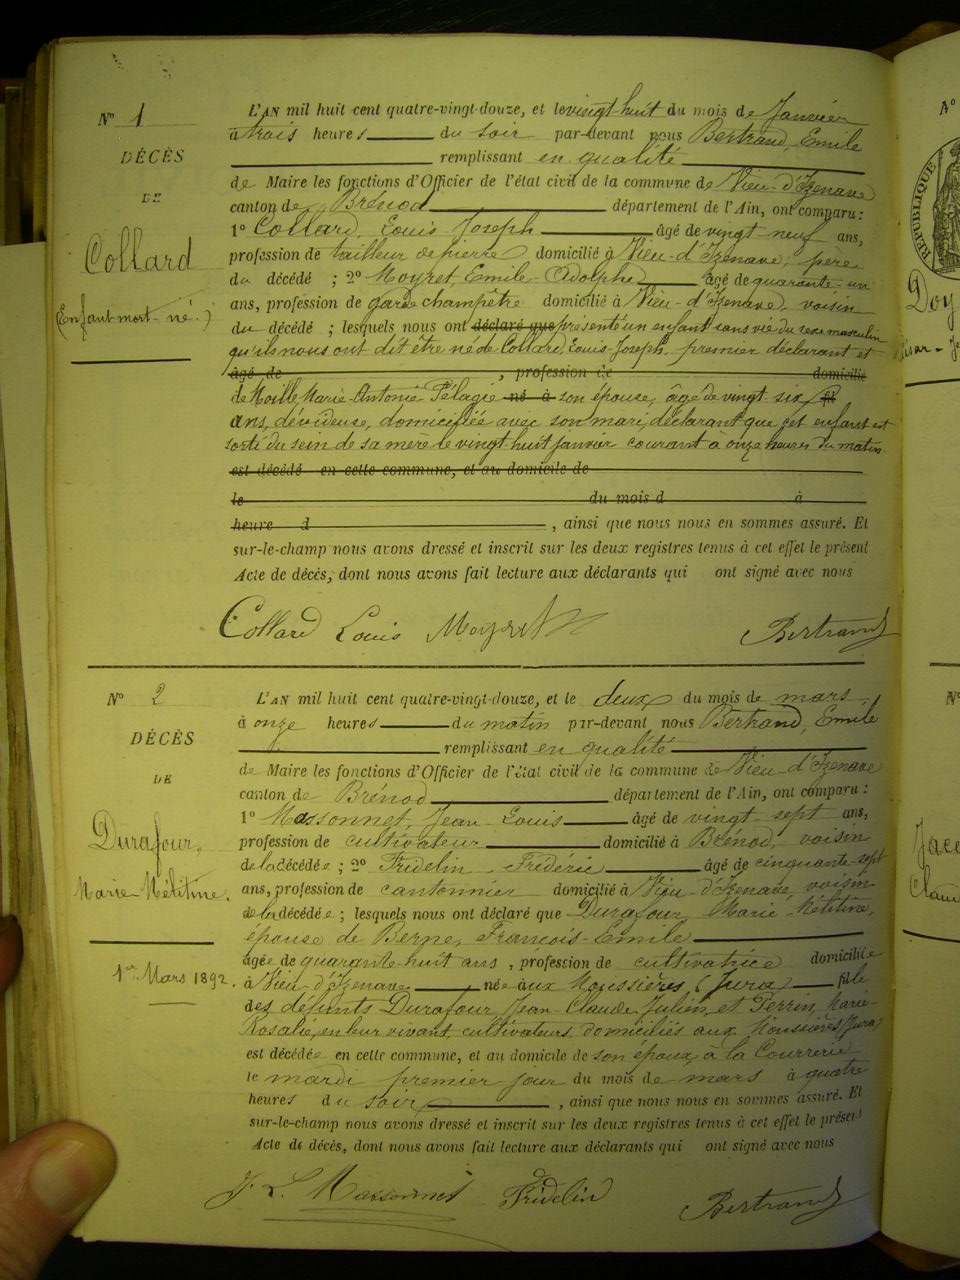 N° 1
DÉCÈS
DE
Collard
(Enfant mort-né.)
L'AN mil huit cent quatre-vingt-douze, et le vingt-huit du mois de Janvier
à trois heures du soir par-devant nous Bertrand, Emile
remplissant en qualité
de Maire les fonctions d'Officier de l'état civil de la commune de Vieu-d'Izenave
canton de Brénod département de l'Ain, ont comparu :
1° Collard, Louis Joseph âgé de vingt-neuf ans,
profession de tailleur de pierre domicilié à Vieu-d'Izenave, père
du décédé ; 2° Moyret, Emile-Adolphe âgé de quarante-un
ans, profession de garde champêtre domicilié à Vieu-d'Izenave, voisin
du décédé ; lesquels nous ont déclaré que présenté un enfant sans vie du sexe masculin
qu'ils nous ont dit être né de Collard, Louis-Joseph, premier déclarant et
âgé de , profession de domicilié
de Moille Marie-Antonie Pélagie né à son épouse, âgé de vingt-six
ans, dévideuse, domiciliée avec son mari, déclarant que cet enfant est
sorti du sein de sa mère le vingt-huit Janvier courant à onze heures du matin
est décédé en cette commune, et au domicile de
le du mois d à
heure d , ainsi que nous nous en sommes assuré. Et
sur-le-champ nous avons dressé et inscrit sur les deux registres tenus à cet effet le présent
Acte de décès, dont nous avons fait lecture aux déclarants qui ont signé avec nous
Collard Louis Moyret Bertrand
N° 2
DÉCÈS
DE
Durafour,
Marie-Mélitine.
1er Mars 1892.
L'AN mil huit cent quatre-vingt-douze, et le deux du mois de mars
à onze heures du matin par-devant nous Bertrand, Emile
remplissant en qualité
de Maire les fonctions d'Officier de l'état civil de la commune de Vieu-d'Izenave
canton de Brénod département de l'Ain, ont comparu :
1° Massonnet, Jean-Louis âgé de vingt-sept ans,
profession de cultivateur domicilié à Brénod, voisin
de la décédée ; 2° Fridelin, Frédéric âgé de cinquante-sept
ans, profession de cantonnier domicilié à Vieu-d'Izenave, voisin
de la décédée ; lesquels nous ont déclaré que Durafour, Marie-Mélitine,
épouse de Berne, François-Emile
âgée de quarante-huit ans , profession de cultivatrice domiciliée
à Vieu-d'Izenave née aux Moussières (Jura) fille
des défunts Durafour, Jean-Claude Julien, et Perrin, Marie-
Rosalie, en leur vivant, cultivateurs domiciliés aux Moussières (Jura)
est décédée en cette commune, et au domicile de son époux, à la Courrerie
le mardi premier jour du mois de mars à quatre
heures du soir , ainsi que nous nous en sommes assuré. Et
sur-le-champ nous avons dressé et inscrit sur les deux registres tenus à cet effet le présent
Acte de décès, dont nous avons fait lecture aux déclarants qui ont signé avec nous
J. L. Massonnet Fridelin Bertrand
RÉPUBLIQUE